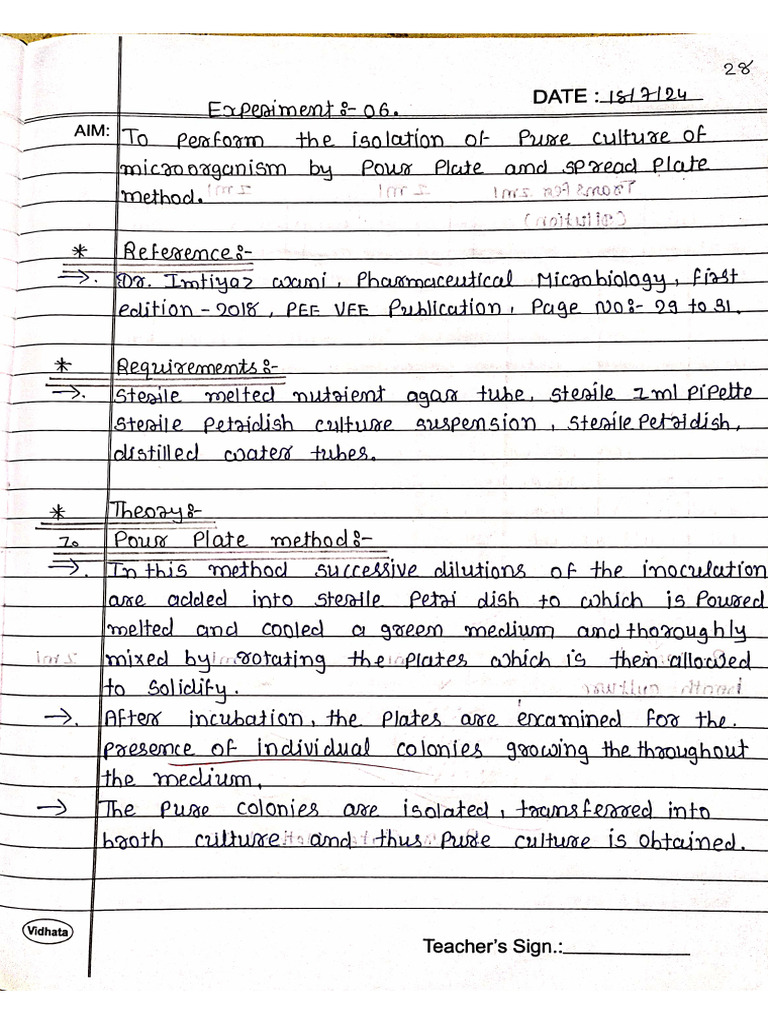 28
DATE : 18/7/24
Experiment:- 06.
AIM: To perform the isolation of Pure culture of
microorganism by Pour Plate and spread Plate
method.
* Reference:-
→. Dr. Imtiyaz wani, Pharmaceutical Microbiology, First
edition - 2018, PEE VEE Publication, Page No:- 29 to 31.
* Requirements:-
→. Sterile melted nutrient agar tube, sterile 1ml Pipette
sterile Petridish culture suspension, sterile Petridish,
distilled water tubes.
* Theory:-
1. Pour Plate method:-
→. In this method successive dilutions of the inoculation
are added into sterile Petri dish to which is Poured
melted and cooled a green medium and thoroughly
mixed by rotating the Plates which is then allowed
to solidify.
→. After incubation, the Plates are examined for the.
Presence of individual colonies growing the throughout
the medium.
→ The Pure colonies are isolated, transferred into
broth culture and thus Pure culture is obtained.
Vidhata
Teacher's Sign.: